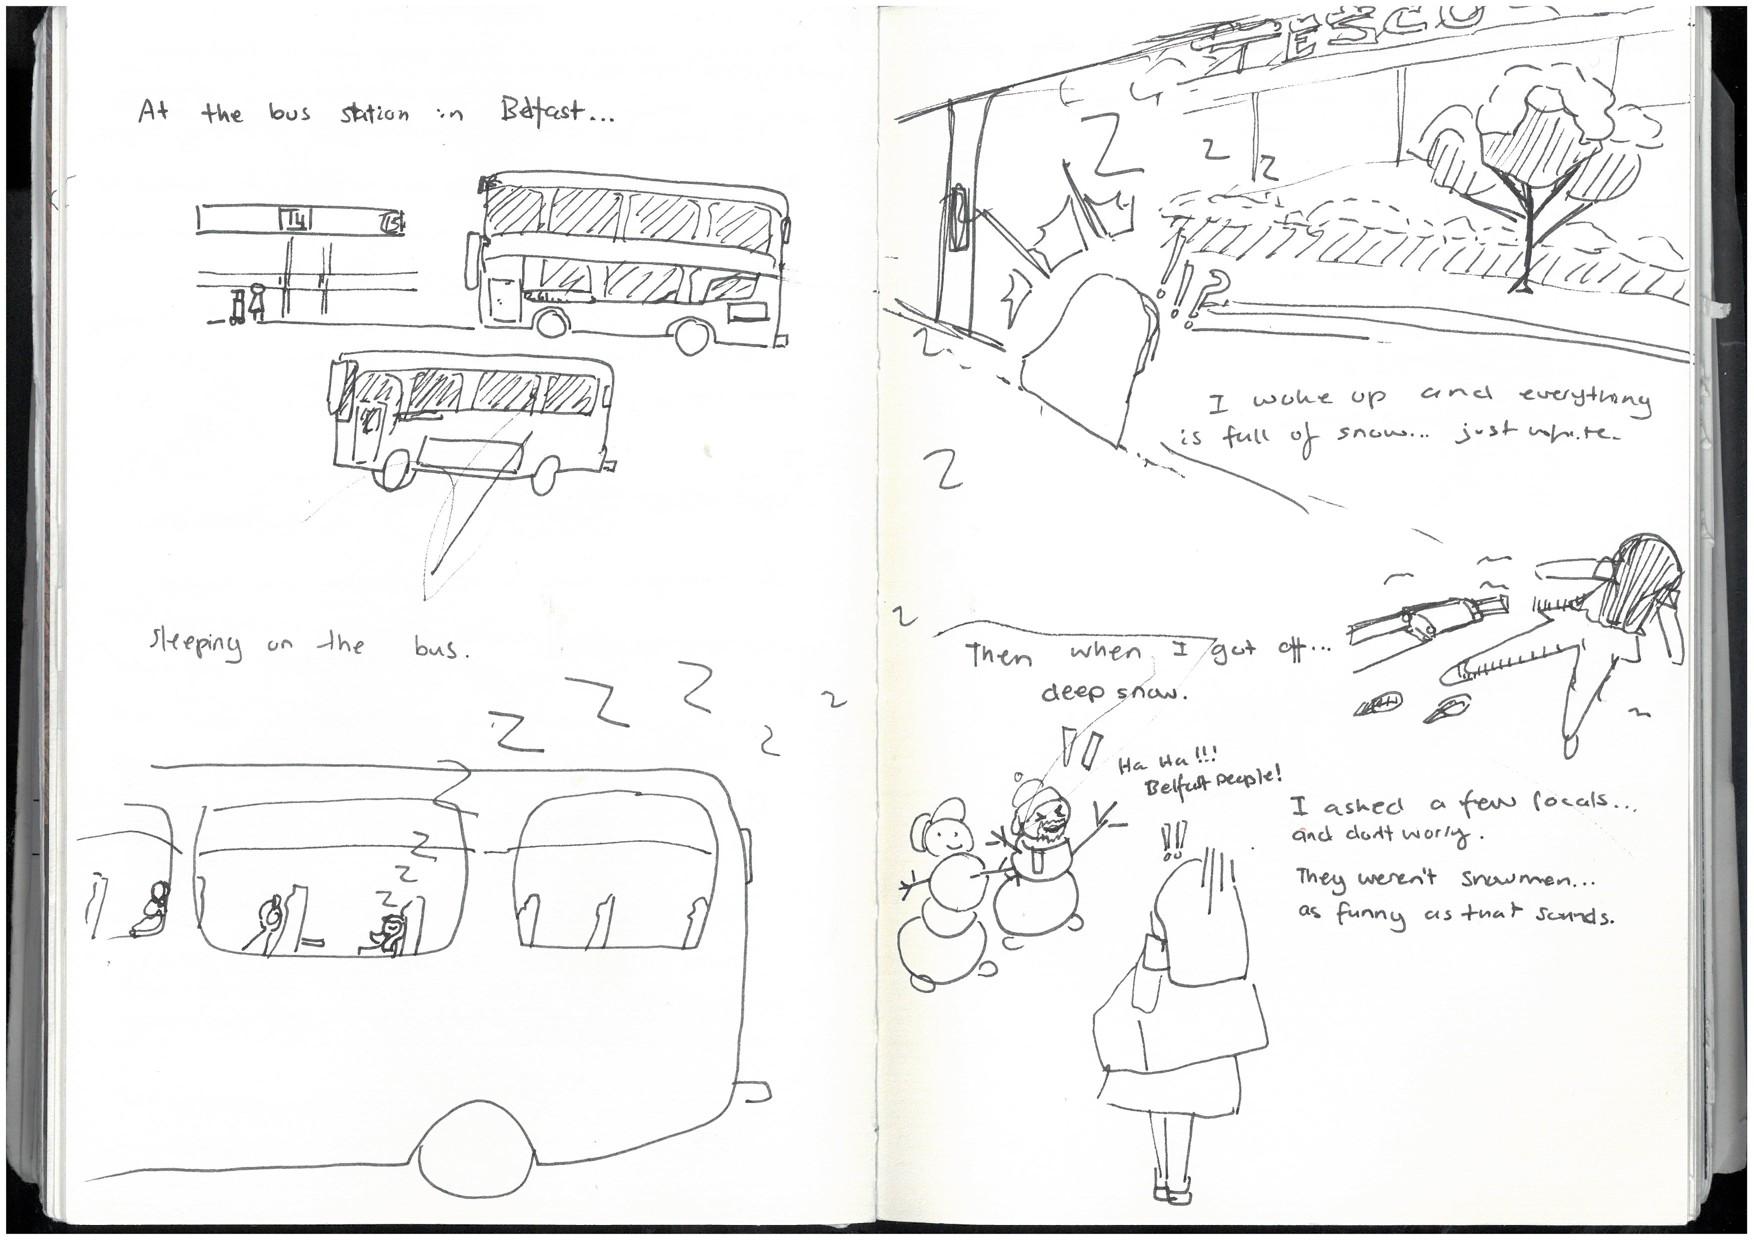 At the bus station in Belfast...
T4
T5
Sleeping on the bus.
Z Z Z z z
Z z z z
TESCO
Z z z
! ! ?
z
I woke up and everything
is full of snow... just white.
Z
z
Then when I got off...
deep snow.
Ha Ha!!!
Belfast people!
!!
I asked a few locals...
and don't worry.
They weren't snowmen...
as funny as that sounds.